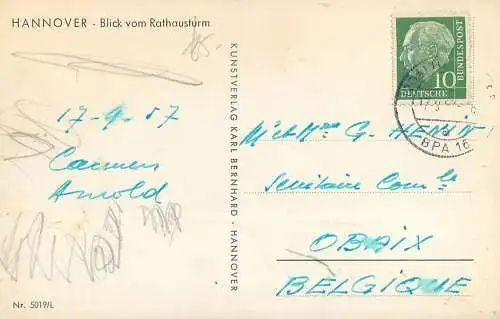 HANNOVER - Blick vom Rathausturm
17-9-57
Carmen
Arnold
Nr. 5019/L
KUNSTVERLAG KARL BERNHARD - HANNOVER
10
DEUTSCHE
BUNDESPOST
BPA 16
G. HENIN
OBAIX
BELGIQUE